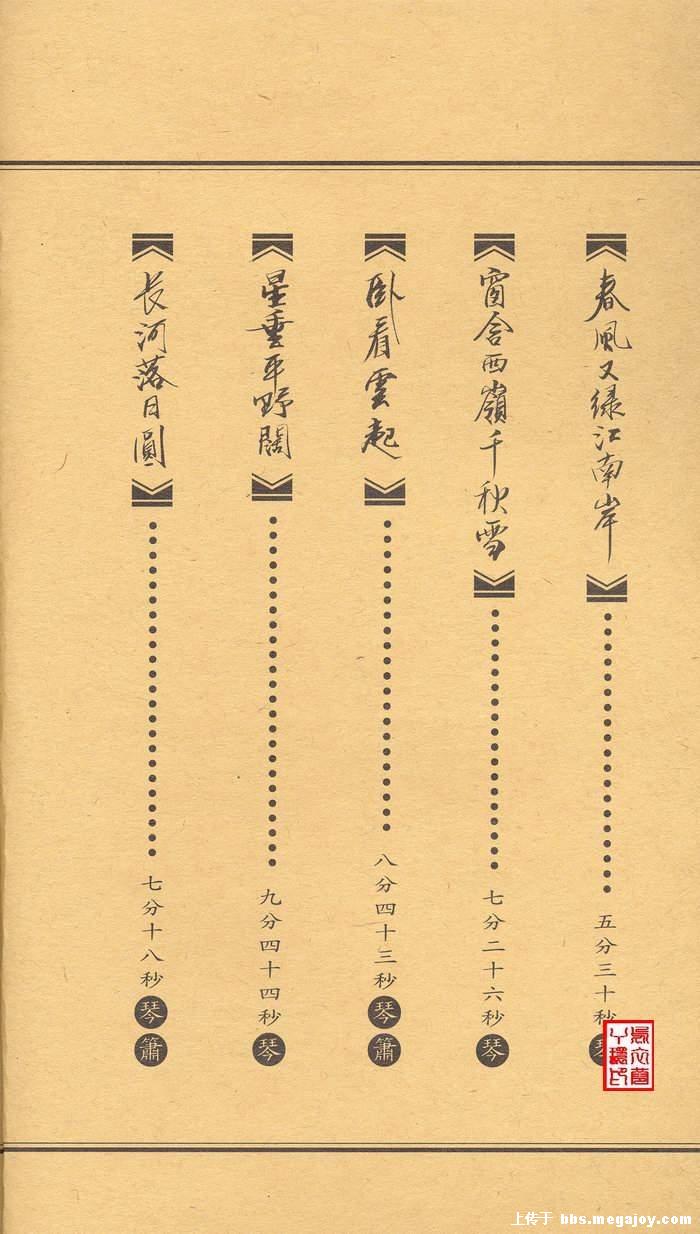 春風又绿江南岸
五分三十秒
琴
窗含西嶺千秋雪
七分二十六秒
琴
卧看雲起
八分四十三秒
琴
簫
星垂平野闊
九分四十四秒
琴
长河落日圓
七分十八秒
琴
簫
上传于 bbs.megajoy.com